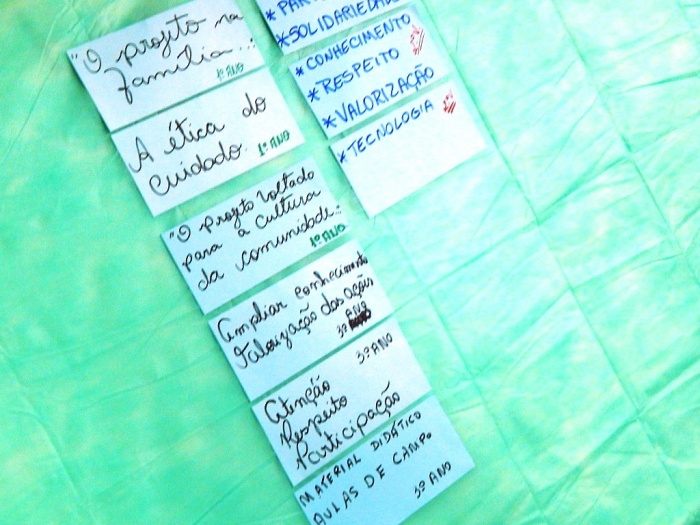 "O projeto na
família...:
1º ANO
A ética do
cuidado. 1º ANO
"O projeto voltado
para a cultura
da comunidade..:
1º ANO
Ampliar conhecimento
Valorização das ações
3º ANO
3º ANO
Atenção
Respeito
Participação
MATERIAL DIDÁTICO
AULAS DE CAMPO
3º ANO
*SOLIDARIEDADE
*CONHECIMENTO
*RESPEITO
*VALORIZAÇÃO
*TECNOLOGIA